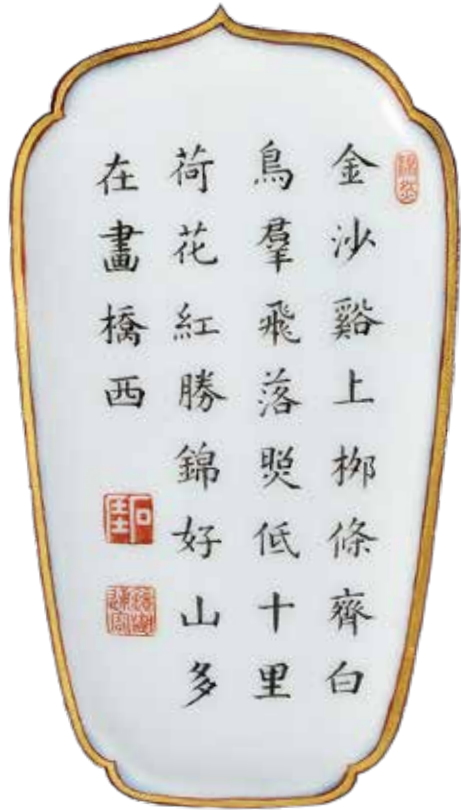 金沙谿上栁條齊白
鳥羣飛落煚低十里
荷花紅勝錦好山多
在畫橋西